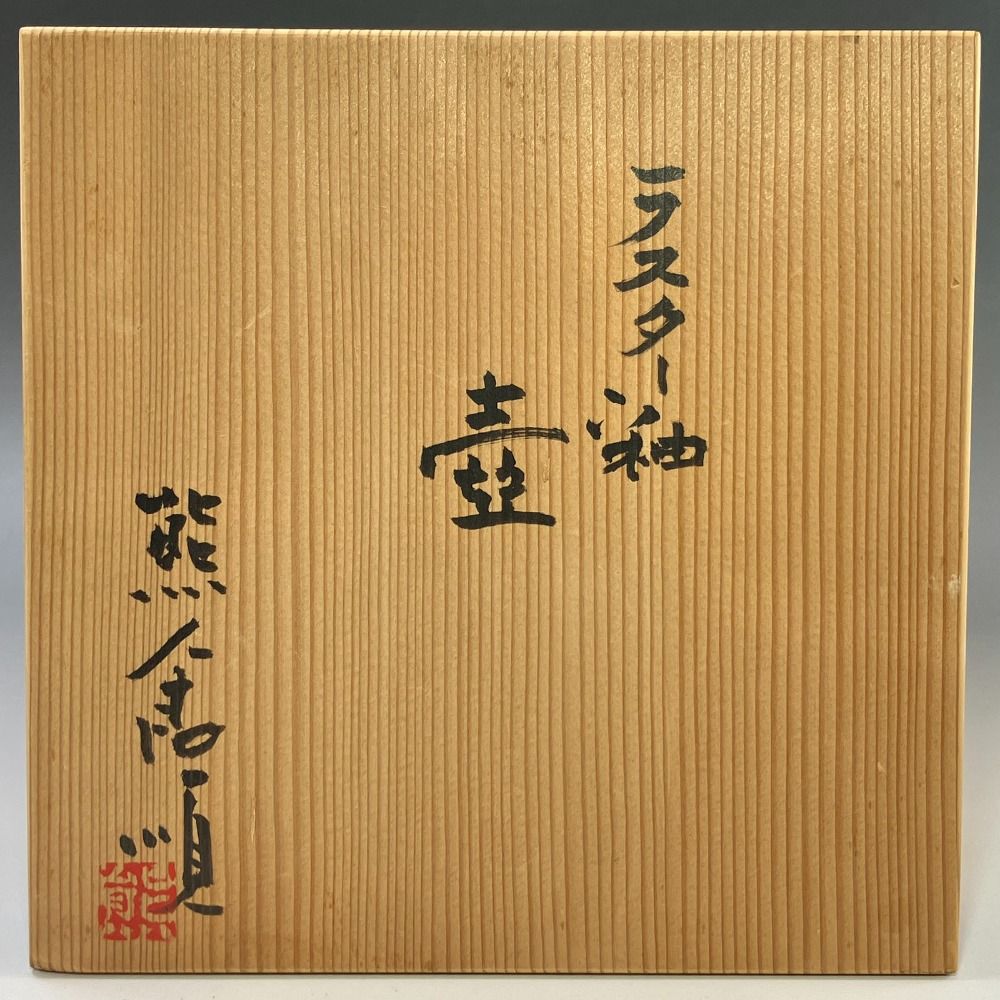 ラスター釉
壺
熊倉順